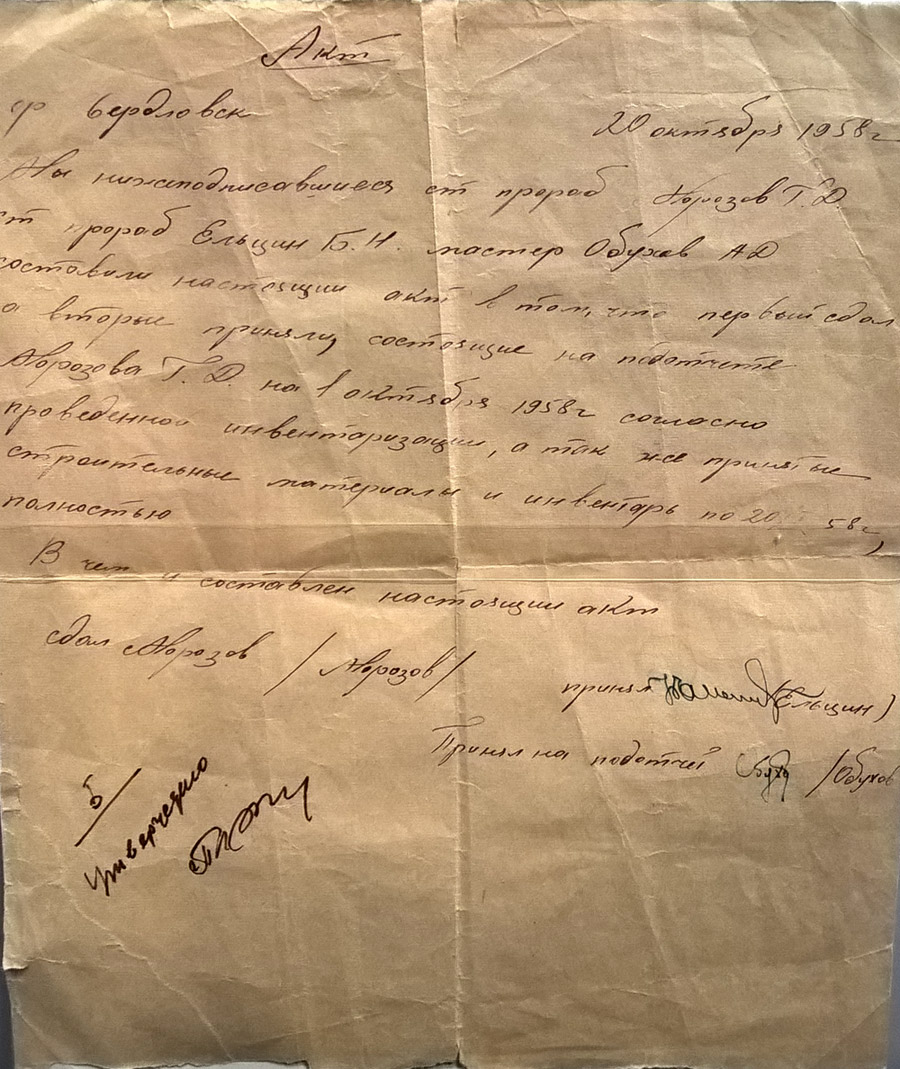 Акт
гр Свердловск
20 октября 1958г
Мы нижеподписавшиеся ст прораб Морозов Г.Д
ст прораб Ельцин Б.Н. мастер Обухов АД
составили настоящии акт в том, что первый сдал
а вторые приняли, состоящие на подотчете
Морозова Г.Д. на 1 октября 1958г согласно
проведенной инвентаризации, а так же принятые
строительные материалы и инвентарь по 20 58г,
полностью
В чем и составлен настоящии акт
сдал Морозов /Морозов/
принял (Ельцин)
Принял на подотчет Обухо /Обухов
Утверждаю